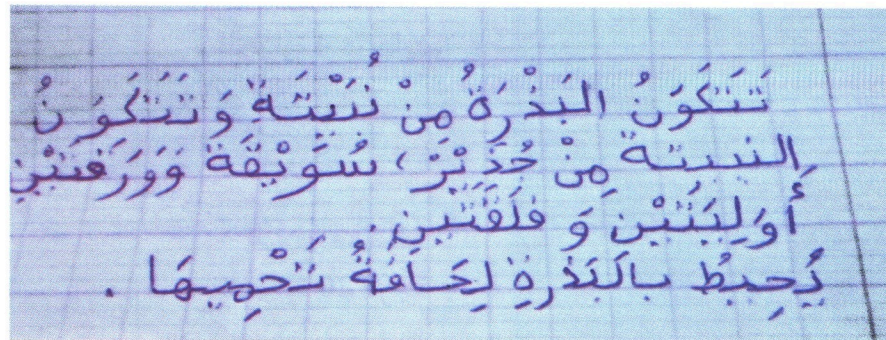 تَتَكَوَنُ البَذْرَةُ مِنْ نُبَيْتَةٍ وَتَتَكَوَنُ
النبيتة مِنْ جُذَيْرْ، سُوَيْقَة وَوَرَقَتَيْنِ
أَوَلِيَتَيْنِ وَ فلقَتَينِ.
يُحِيطُ بالبَذرةِ لِحَافَةُ تَحْمِيهَا .